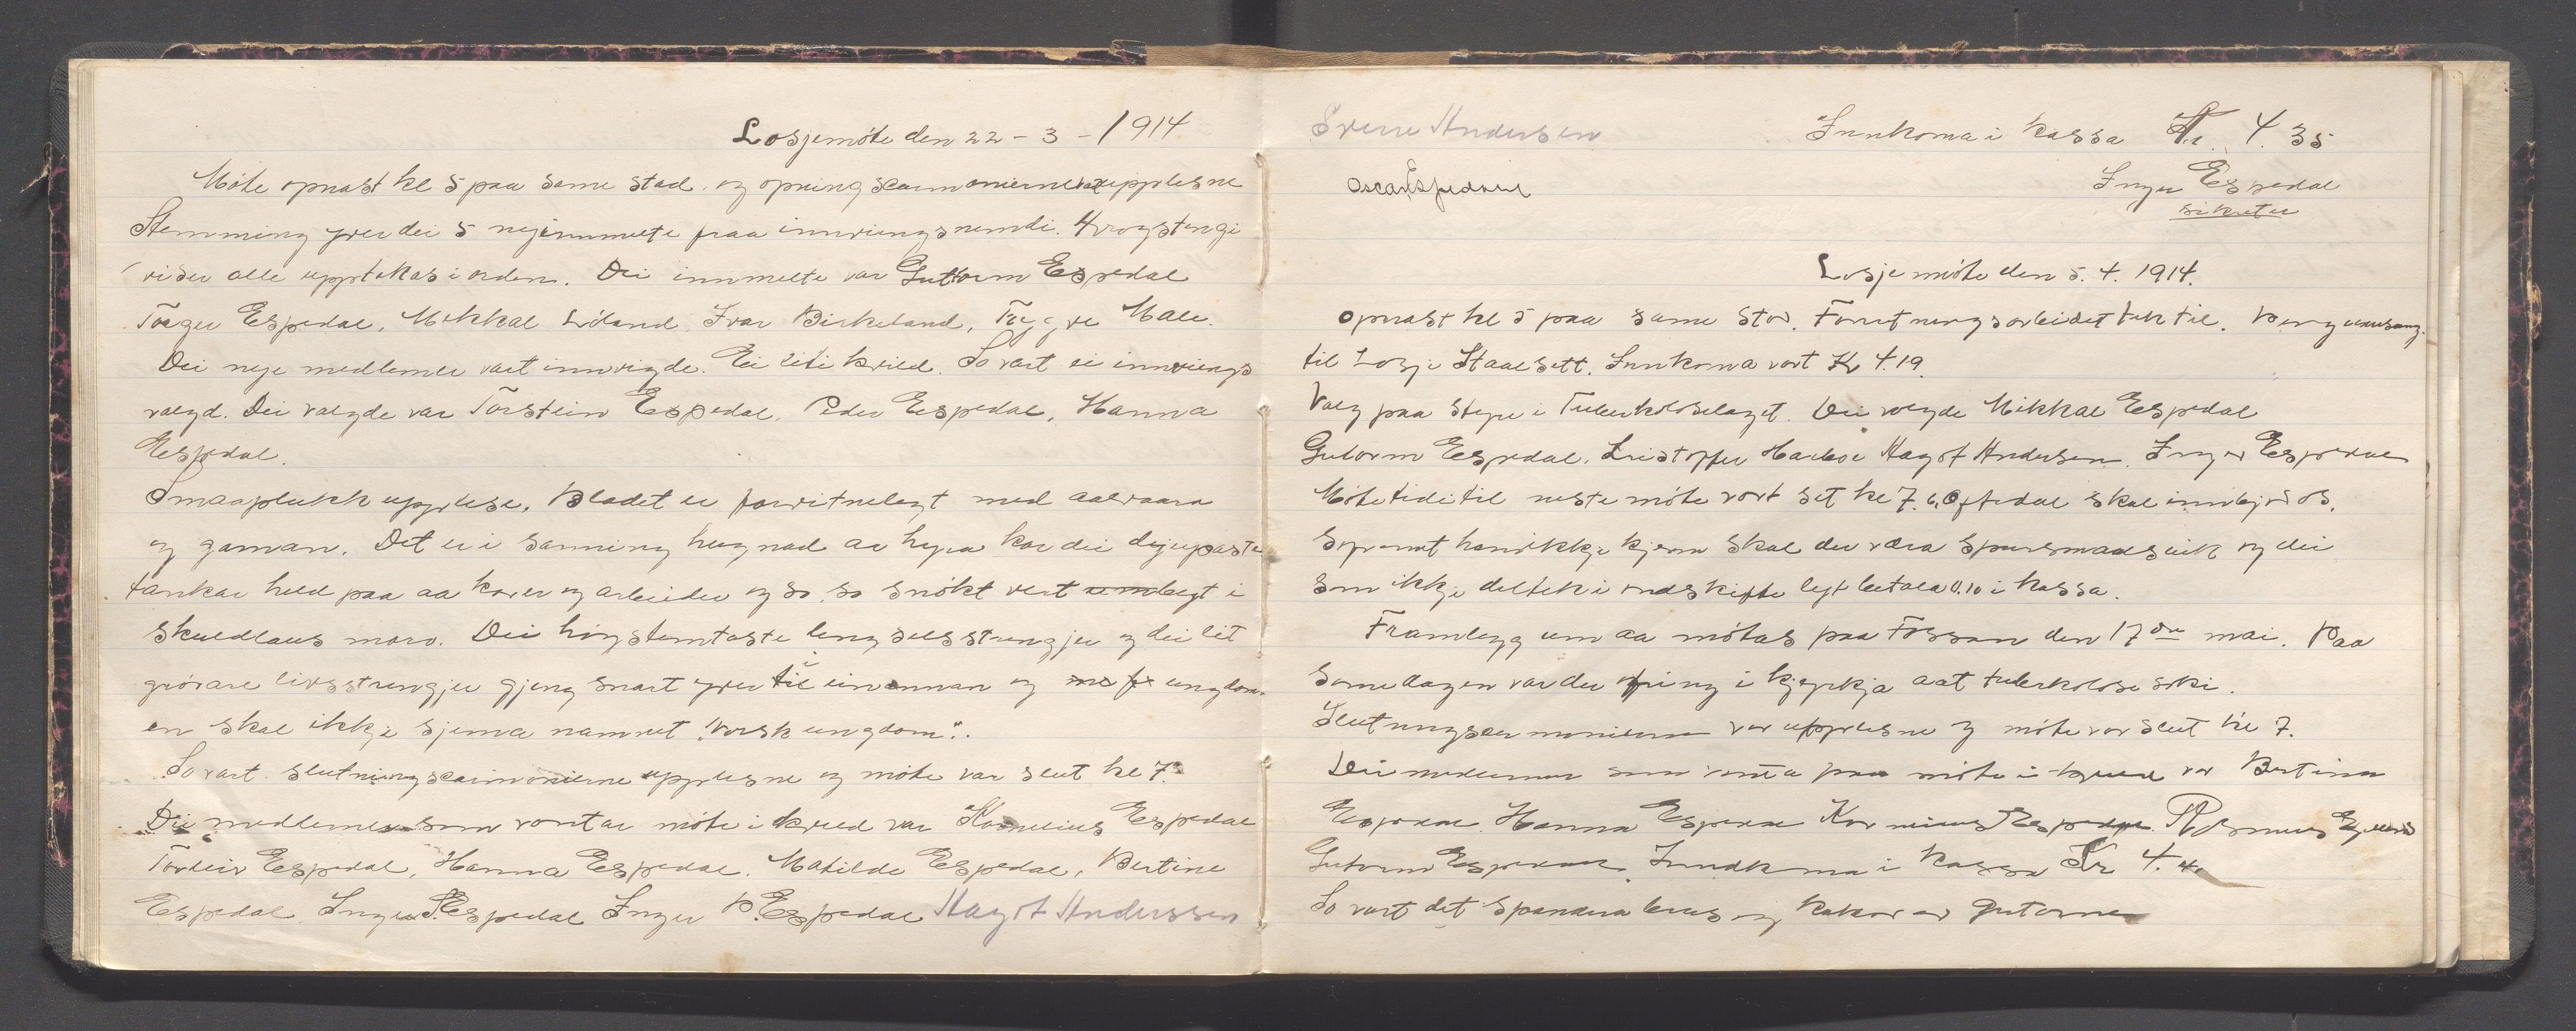 Losjemöte den 22-3-1914
Möte opnast kl 5 paa same stad. og opning scermonierne var upplesne
Stemming yver dei 5 nyinnmelte fraa innviengsnemdi.
viser alle upptekas i orden. Dei innmelte var Guttorm Espedal
Torger Espedal, Mikkal Löland Ivar Birkeland, Tryggve Male.
Dei nye medlemer vart innvigde. Ei liti kvild. So vart ei innviengs
valgd. Dei valgde var Torstein Espedal, Peder Espedal, Hanna
Espedal.
Smaaplukk upplese. Bladet er forvitnelegt med aalvaara
og gaman. Det er i sanning hugnad aa høyra kor dei djupaste
tankar held paa aa kaver og arbeider og so so snökt vert lagt i
skuldlaus moro. Dei högstemtaste lengselsstrengjer og dei lit
grövare livsstrengjer gjeng snart yver til einannan og ungdom-
en skal ikkje sjema namnet "norsk ungdom".
So vart slutningscarimonierne upplesne og möte var slut kl 7.
Dei medlemer som vantar möte i kveld var Kornelius Espedal
Tordeiv Espedal, Hanna Espedal. Matilde Espedal, Bertine
Espedal. Inger S. Espedal Inger B. Espedal Hagot Anderssen
Sverre Andersen
Oscar Espedal
Innkoma i kassa Kr. 4.35
Inger Espedal
sikretær
Losje möte den 5.4.1914.
Opnast kl 5 paa same stad. Forretningsarbeidet tek til.
til Losje Staalsett. Innkoma vart Kr 4.19.
Valg paa styre i Tuberkoloselaget. Dei valgde Mikkal Espedal
Gutorm Espedal. Kristoffer Hagot Andersen. Inger Espedal
Möte tidi til neste möte vart set kl 7. Oftedal skal innbjodas.
Sopramt han ikkje kjem skal der væra spursmaal og dei
som ikkje deltek i ordskifte lyt betala 0.10 i kassa.
Framlegg um aa mötas paa Fossan den 17de mai. Paa
same dagen var der ofring i kjyrkja aat tuberkolose saki.
Slutningscermonierne var upplesne og möte var slut kl 7.
Dei medlemer som vanta paa möte i kveld var Bertina
Espedal. Hanna Espedal Kornelius Espedal. Rasmus Espedal
Gutorm Espedal. Inndkoma i kassa Kr 4.
So vart det spandera brus og kakor av gutorne